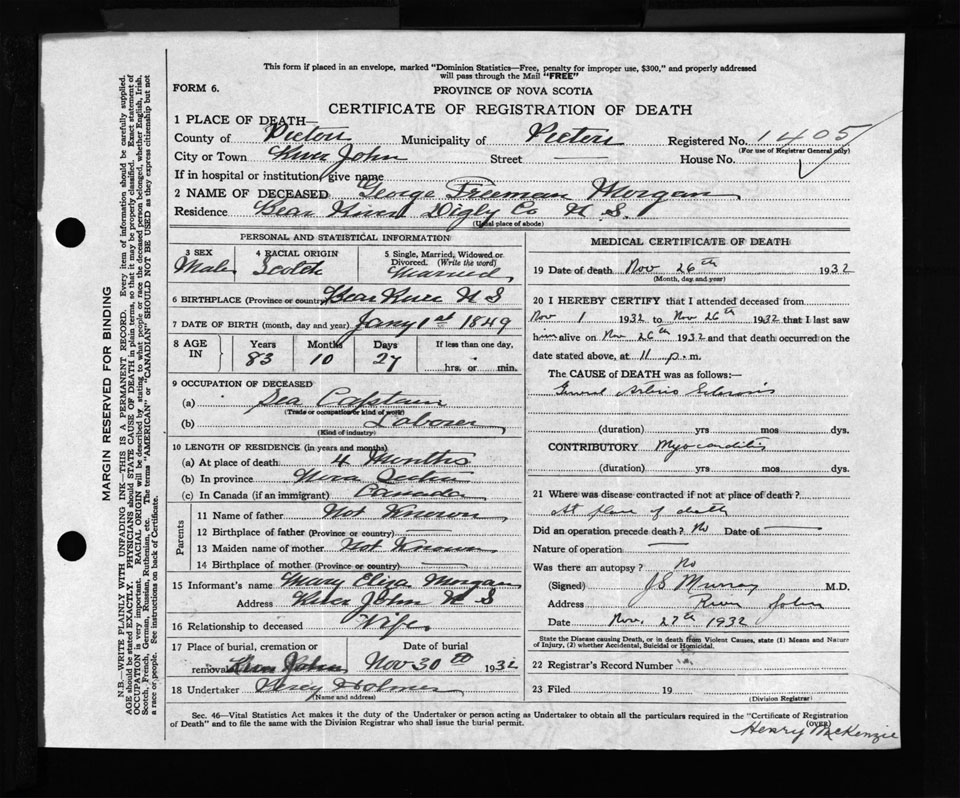 This form if placed in an envelope, marked "Dominion Statistics—Free, penalty for improper use, $300," and properly addressed
will pass through the Mail "FREE"
FORM 6.
PROVINCE OF NOVA SCOTIA
CERTIFICATE OF REGISTRATION OF DEATH
1 PLACE OF DEATH—
County of Pictou Municipality of Pictou Registered No. 1405
(For use of Registrar General only)
City or Town River John Street — House No.
If in hospital or institution, give name
2 NAME OF DECEASED George Freeman Morgan
Residence Bear River Digby Co N.S.
(Usual place of abode)
PERSONAL AND STATISTICAL INFORMATION
3 SEX Male
4 RACIAL ORIGIN Scotch
5 Single, Married, Widowed or Divorced. (Write the word) Married
6 BIRTHPLACE (Province or country) Bear River N S
7 DATE OF BIRTH (month, day and year) Jany 1st 1849
8 AGE IN Years 83 Months 10 Days 27 If less than one day, hrs. or min.
9 OCCUPATION OF DECEASED
(a) Sea Captain
(Trade or occupation or kind of work)
(b) Laborer
(Kind of industry)
10 LENGTH OF RESIDENCE (in years and months)
(a) At place of death 4 Months
(b) In province Nova Scotia
(c) In Canada (if an immigrant) Canada
Parents
11 Name of father Not Known
12 Birthplace of father (Province or country)
13 Maiden name of mother Not Known
14 Birthplace of mother (Province or country) —
15 Informant's name Mary Eliza Morgan
Address River John N S
16 Relationship to deceased Wife
17 Place of burial, cremation or removal River John Date of burial Nov 30th 1932
18 Undertaker Percy Holmes
(Name and address)
MEDICAL CERTIFICATE OF DEATH
19 Date of death Nov 26th 1932
(Month, day and year)
20 I HEREBY CERTIFY that I attended deceased from
Nov 1 1932 to Nov 26th 1932 that I last saw
him alive on Nov 26th 1932 and that death occurred on the
date stated above, at 11 p.m.
The CAUSE of DEATH was as follows:—
General Arterio Sclerosis
(duration) yrs mos dys.
CONTRIBUTORY Myocarditis
(duration) yrs mos dys.
21 Where was disease contracted if not at place of death?
At place of death
Did an operation precede death? No Date of —
Nature of operation —
Was there an autopsy? No
(Signed) J S Murray M.D.
Address River John
Date Nov. 27th 1932
State the Disease causing Death, or in death from Violent Causes, state (1) Means and Nature
of Injury, (2) whether Accidental, Suicidal or Homicidal.
22 Registrar's Record Number
23 Filed 19
(Division Registrar)
Sec. 46—Vital Statistics Act makes it the duty of the Undertaker or person acting as Undertaker to obtain all the particulars required in the "Certificate of Registration
of Death" and to file the same with the Division Registrar who shall issue the burial permit.
(OVER)
Henry McKenzie
MARGIN RESERVED FOR BINDING
N.B.—WRITE PLAINLY WITH UNFADING INK—THIS IS A PERMANENT RECORD. Every item of information should be carefully supplied.
AGE should be stated EXACTLY. PHYSICIANS should STATE CAUSE OF DEATH in plain terms, so that it may be properly classified. Exact statement of
OCCUPATION is very important. RACIAL ORIGIN will be described by stating to what people or race the deceased person belonged, whether English, Irish,
Scotch, French, German, Russian, Ruthenian, etc. The terms "AMERICAN" or "CANADIAN" SHOULD NOT BE USED as they express citizenship but not
a race or people. See instructions on back of Certificate.